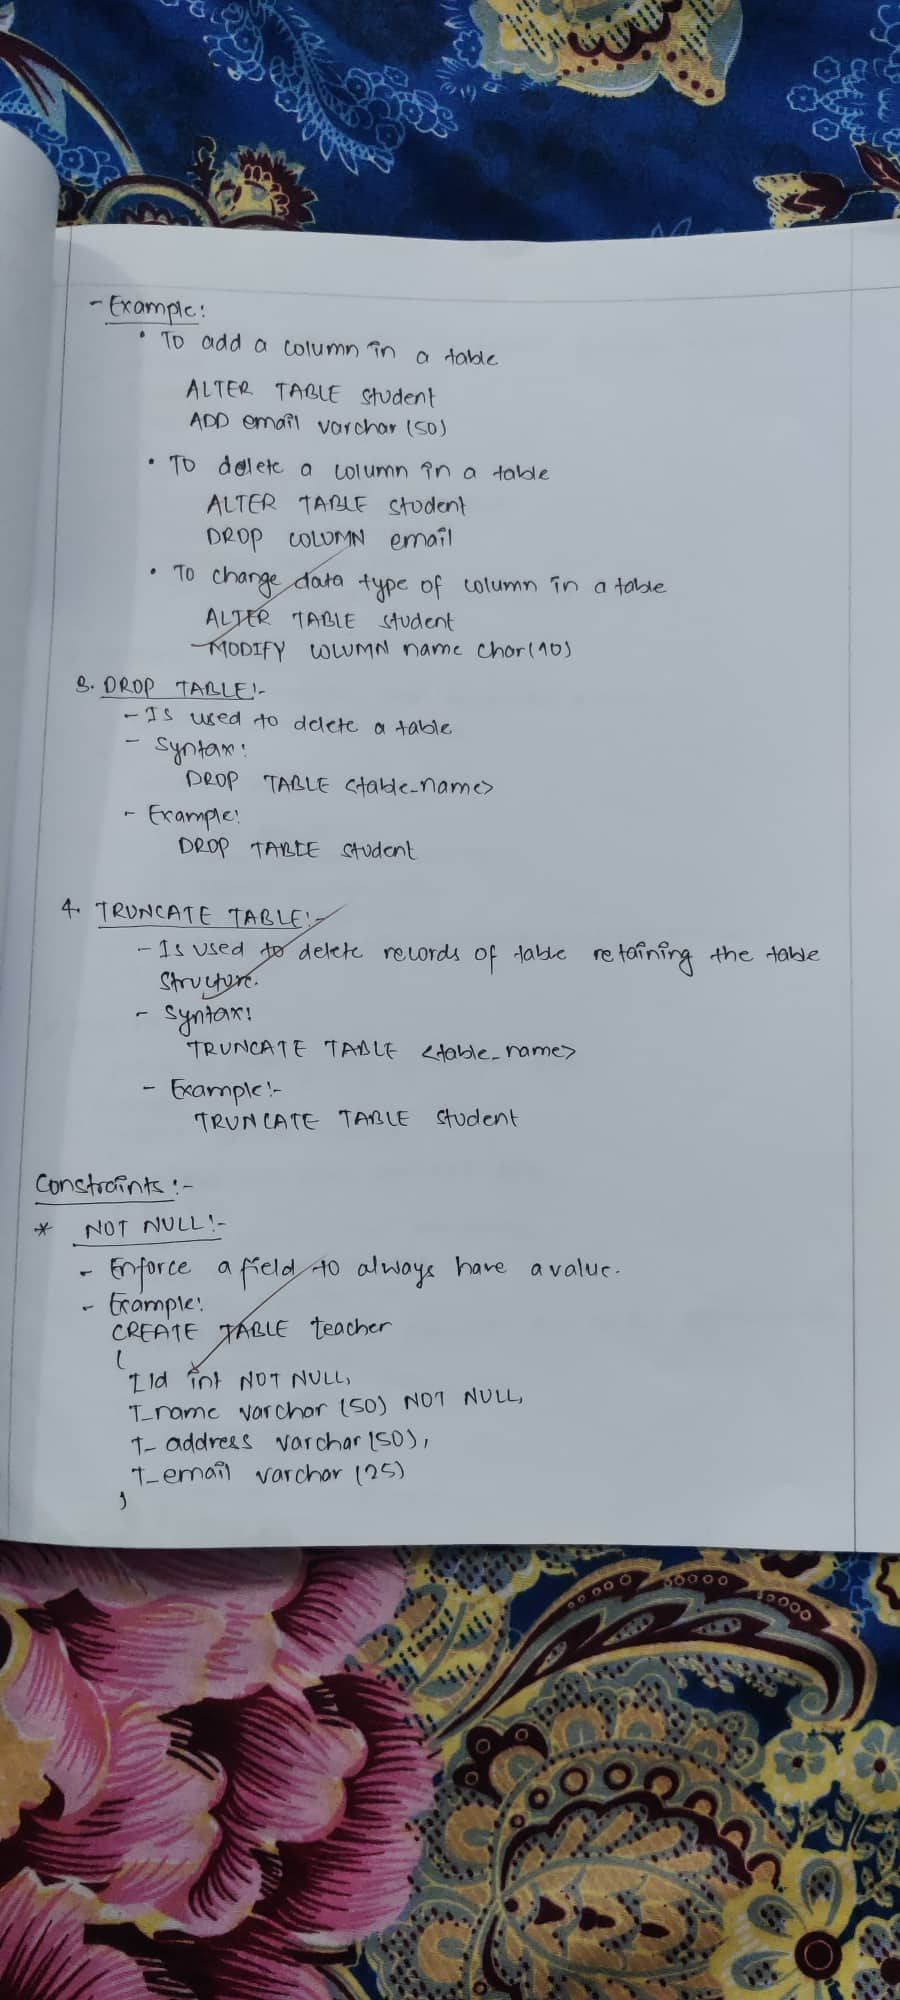 - Example:
• To add a column in a table
ALTER TABLE student
ADD email varchar (50)
• To delete a column in a table
ALTER TABLE student
DROP COLUMN email
• To change data type of column in a table
ALTER TABLE student
MODIFY COLUMN name char(10)
3. DROP TABLE:-
- Is used to delete a table
- Syntax:
DROP TABLE <table_name>
- Example:
DROP TABLE student
4. TRUNCATE TABLE:-
- Is used to delete records of table retaining the table
structure.
- Syntax:
TRUNCATE TABLE <table_name>
- Example:-
TRUNCATE TABLE student
Constraints:-
* NOT NULL:-
- Enforce a field to always have a value.
- Example:
CREATE TABLE teacher
(
Iid int NOT NULL,
T_name varchar (50) NOT NULL,
T_address varchar (50),
T_email varchar (25)
)